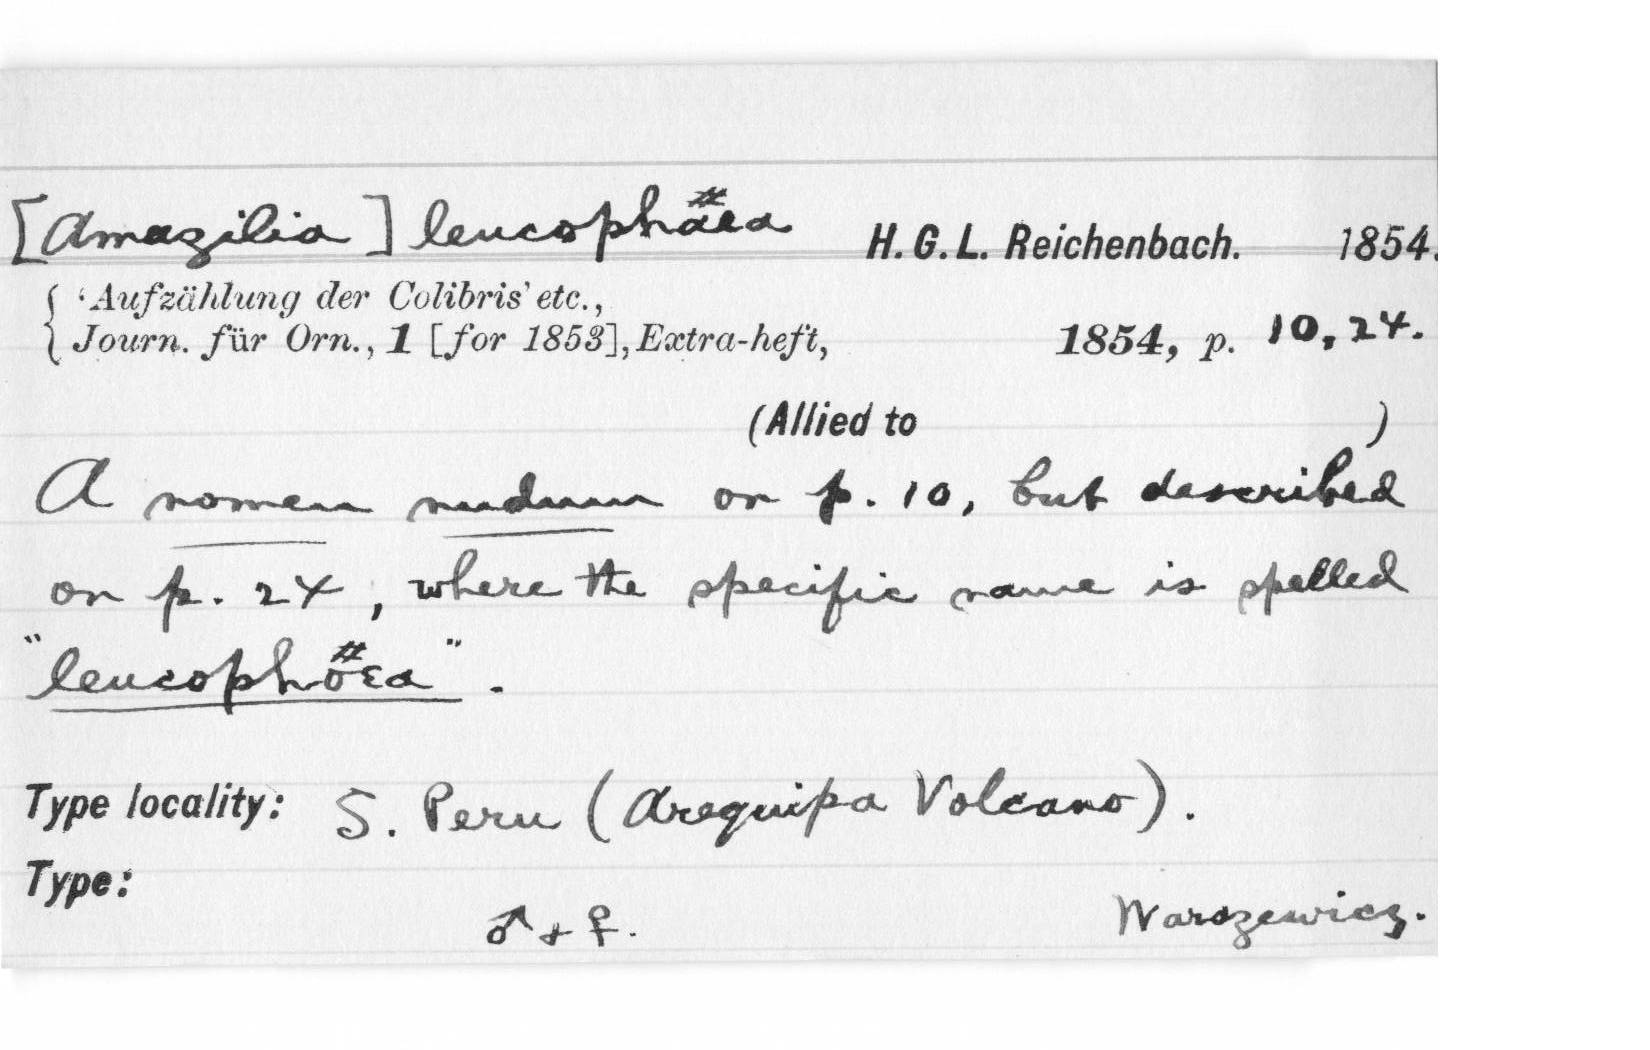 [Amazilia] leucophaea H. G. L. Reichenbach. 1854.
'Aufzählung der Colibris' etc.,
Journ. für Orn., 1 [for 1853], Extra-heft, 1854, p. 10, 24.
(Allied to )
A nomen nudum on p. 10, but described
on p. 24, where the specific name is spelled
"leucophoea".
Type locality: S. Peru (Arequipa Volcano).
Type:
♂ + ♀. Warszewicz.